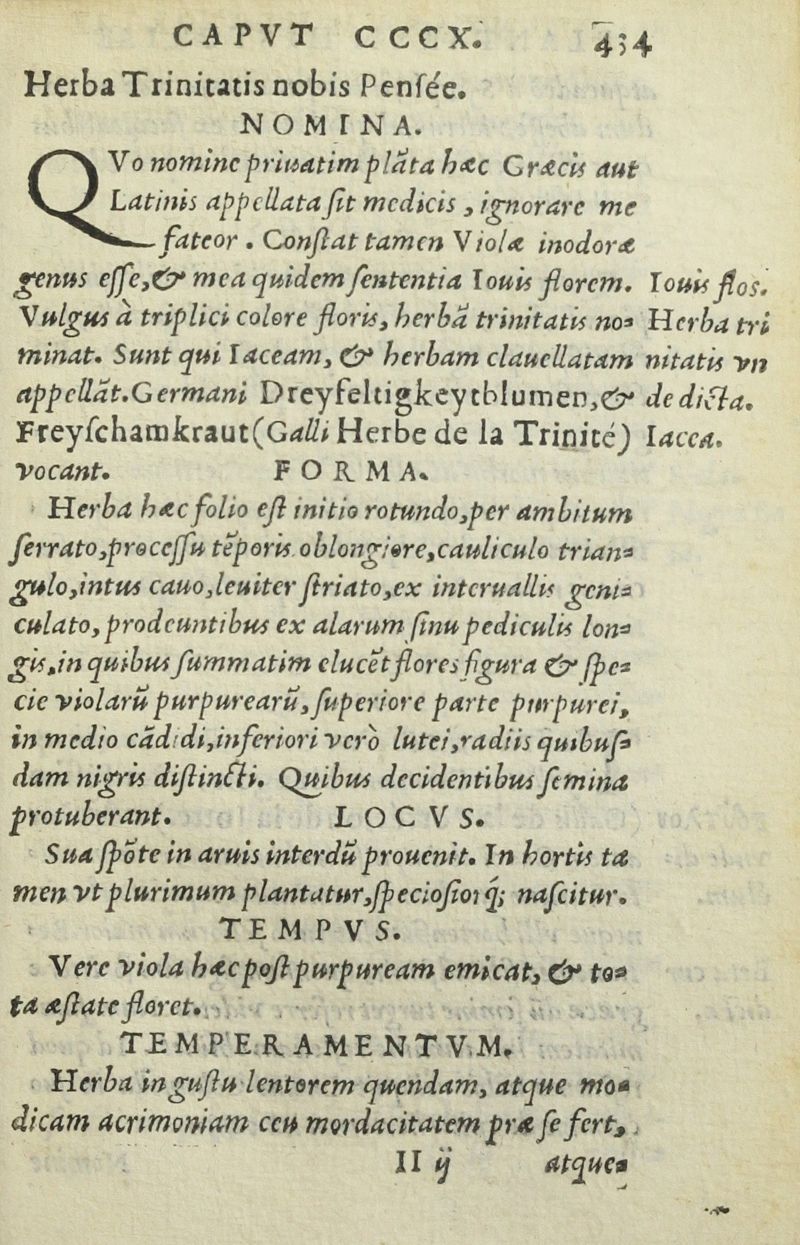 CAPVT CCCX. 434
Herba Trinitatis nobis Penſée.
NOMINA.
QVo nomine priuatim plãta hæc Græcis aut
Latinis appellata ſit medicis, ignorare me
fateor. Conſtat tamen Violæ inodoræ
genus eſſe, & mea quidem ſententia Iouis florem. Iouis flos.
Vulgus à triplici colore floris, herbã trinitatis no- Herba tri
minat. Sunt qui Iaceam, & herbam clauellatam nitatis vn
appellãt. Germani Dreyfeltigkeytblumen, & de dicta.
Freyſchamkraut (Galli Herbe de la Trinité) Iacea.
vocant. FORMA.
Herba hæc folio eſt initio rotundo, per ambitum
ſerrato, proceſſu tẽporis oblongiore, cauliculo trian-
gulo, intus cauo, leuiter ſtriato, ex interuallis geni-
culato, prodeuntibus ex alarum ſinu pediculis lon-
gis, in quibus ſummatim elucẽt flores figura & ſpe-
cie violarũ purpurearũ, ſuperiore parte purpurei,
in medio cãdidi, inferiori verò lutei, radiis quibuſ-
dam nigris diſtincti. Quibus decidentibus ſemina
protuberant. LOCVS.
Sua ſpõte in aruis interdũ prouenit. In hortis ta
men vt plurimum plantatur, ſpecioſiorq́; naſcitur.
TEMPVS.
Vere viola hæc poſt purpuream emicat, & to-
ta æſtate floret.
TEMPERAMENTVM.
Herba in guſtu lentorem quendam, atque mo-
dicam acrimoniam ceu mordacitatem præ ſe fert,
II ij atque-